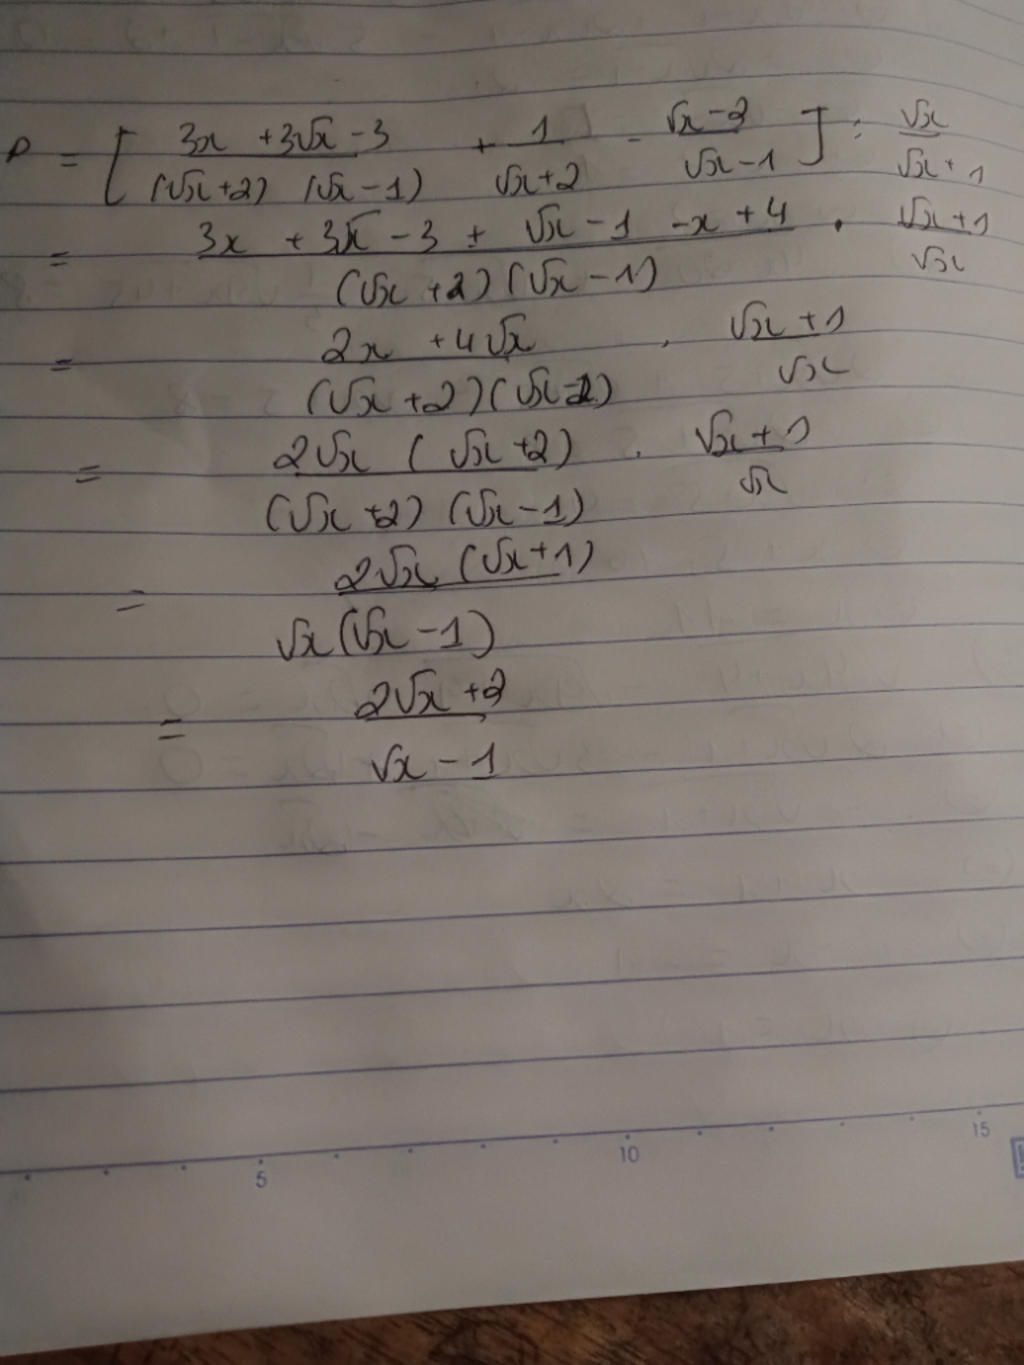 P = [ (3x + 3√x - 3) / ((√x + 2) (√x - 1)) + 1 / (√x + 2) - (√x - 2) / (√x - 1) ] : √x / (√x + 1)
= (3x + 3√x - 3 + √x - 1 - x + 4) / ((√x + 2) (√x - 1)) . (√x + 1) / √x
= (2x + 4√x) / ((√x + 2) (√x - 1)) . (√x + 1) / √x
= 2√x (√x + 2) / ((√x + 2) (√x - 1)) . (√x + 1) / √x
= 2√x (√x + 1) / (√x (√x - 1))
= (2√x + 2) / (√x - 1)
5 10 15